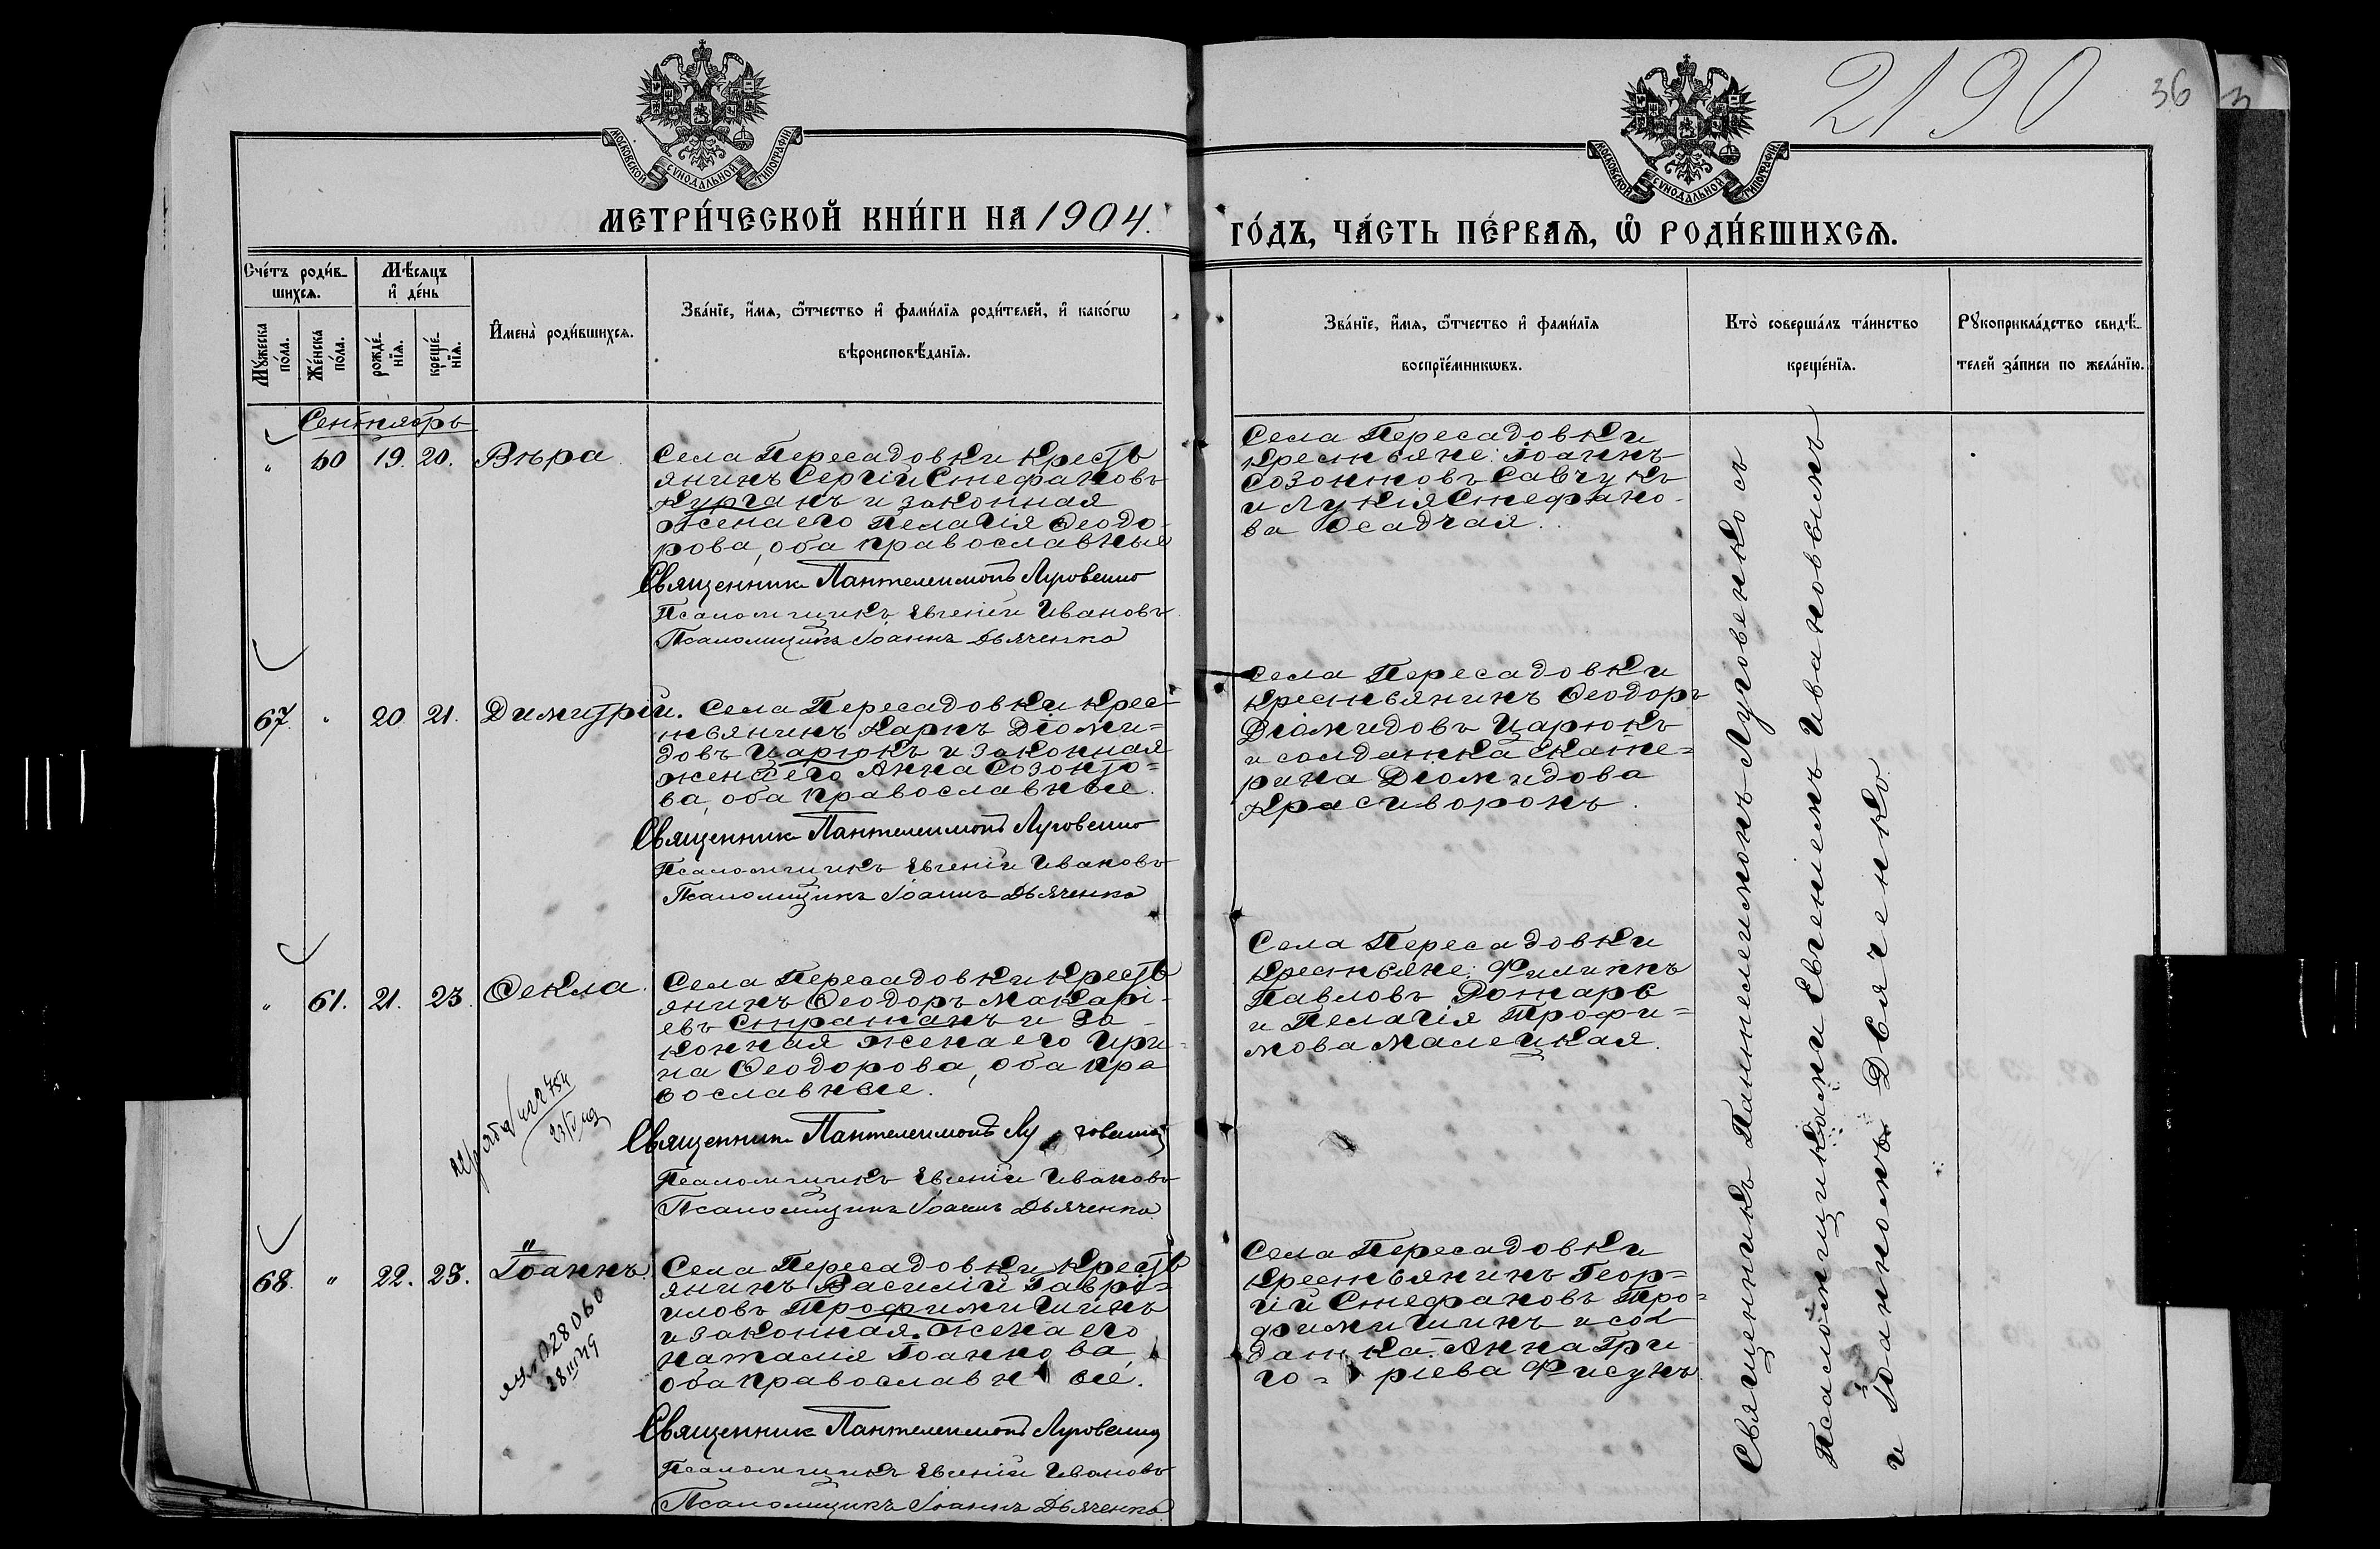 2190
36
МОСКОВСКОЙ СѴНОДАЛЬНОЙ ТИПОГРАФІИ
МОСКОВСКОЙ СѴНОДАЛЬНОЙ ТИПОГРАФІИ
МЕТРИ́ЧЕСКОЙ КНИ́ГИ НА 1904.
ГО́ДЪ, ЧА́СТЬ ПЕ́РВАѦ, Ѡ҆ РОДИ́ВШИХСѦ.
Сче́тъ роди́в-
шихсѧ.
Мѣ́сѧцъ
и҆ де́нь
Мꙋ́жеска
по́ла.
Же́нска
по́ла.
рожде́-
нїѧ.
креще́-
нїѧ.
И҆мена̀ роди́вшихсѧ.
Зва́нїе, и҆́мѧ, ѻ҆́тчество и҆ фами́лїѧ роди́телей, и҆ како́гѡ
вѣроисповѣ́данїѧ.
Зва́нїе, и҆́мѧ, ѻ҆́тчество и҆ фами́лїѧ
воспрїе́мникѡвъ.
Кто̀ соверша́лъ та́инство
креще́нїѧ.
Рꙋкоприкла́дство свидѣ́-
телей за́писи по жела́нїю.
Сентябрь
" 60 19. 20. Вѣра
Села Пересадовки кресть
янинъ Сергій Стефановъ
Курганъ и законная
жена его Пелагія Ѳеодо-
рова, оба православные
Священникъ Пантелеимонъ Луговенко
Псаломщикъ Евгеній Ивановъ
Псаломщикъ Іоаннъ Дьяченко
Села Пересадовки
крестьяне: Іоаннъ
Созонтовъ Савчукъ
и Лукія Стефано-
ва Осадчая.
67. " 20 21. Димитрій.
Села Пересадовки крес-
тьянинъ Карпъ Діоми=
довъ Царюкъ и законная
жена его Анна Созонто=
ва, оба православные.
Священникъ Пантелеимонъ Луговенко
Псаломщикъ Евгеній Ивановъ
Псаломщикъ Іоаннъ Дьяченко
Села Пересадовки
крестьянинъ Ѳеодоръ
Діомидовъ Царюкъ
и солдатка Екате=
рина Діомидова
Красиворонъ.
" 61. 21. 23. Ѳекла.
Села Пересадовки кресть
янинъ Ѳеодоръ Макарі-
евъ Страташъ и за-
конная жена его Ири-
на Ѳеодорова, оба пра
вославные.
Священникъ Пантелеимонъ Луговенко
Псаломщикъ Евгеній Ивановъ
Псаломщикъ Іоаннъ Дьяченко
Села Пересадовки
крестьяне: Филиппъ
Павловъ Рожарь
и Пелагія Трофи=
мова Малецкая.
68. " 22. 23. Іоаннъ.
028060
Села Пересадовки кресть
янинъ Василій Гаврі=
иловъ Трофимишинъ
и законная жена его
Наталія Іоаннова,
оба православные.
Священникъ Пантелеимонъ Луговенко
Псаломщикъ Евгеній Ивановъ
Псаломщикъ Іоаннъ Дьяченко
Села Пересадовки
крестьянинъ Геор=
гій Стефановъ Тро=
фимишинъ и сол
датка Анна Гри
го=ріева Фисунъ.
Священникъ Пантелеимонъ Луговенко съ
Псаломщиками Евгеніемъ Ивановымъ
и Іоанномъ Дьяченко